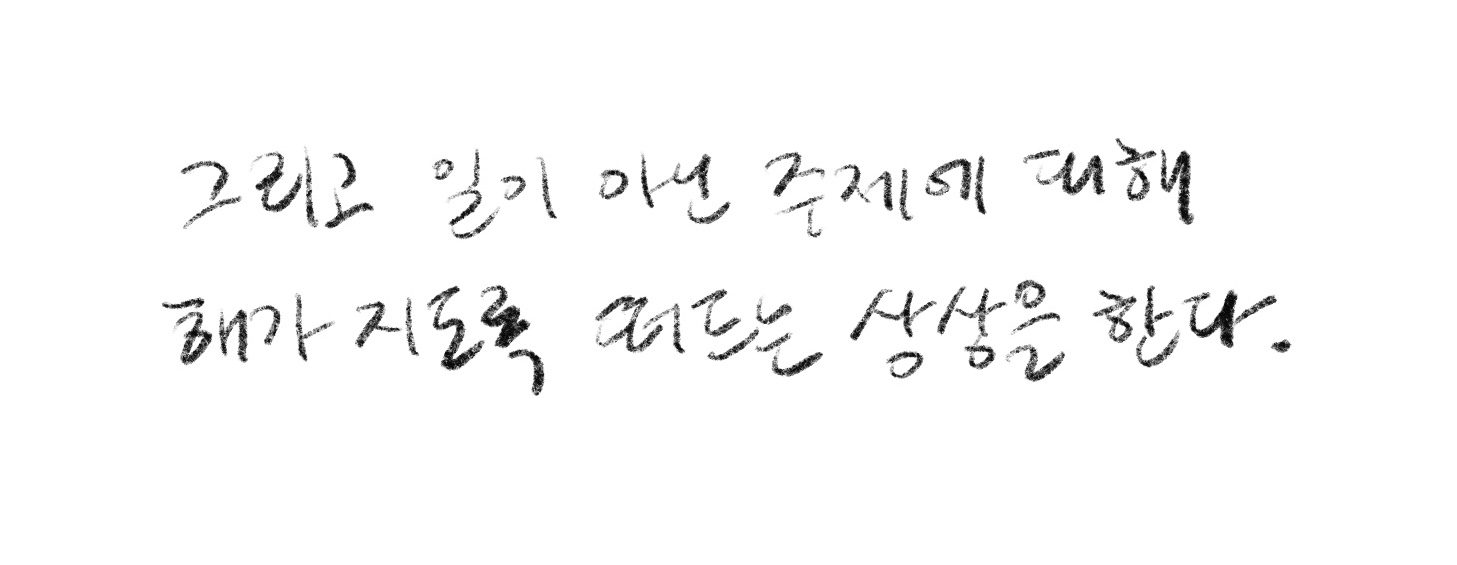 그리고 일이 아닌 주제에 대해
해가 지도록 떠드는 상상을 한다.